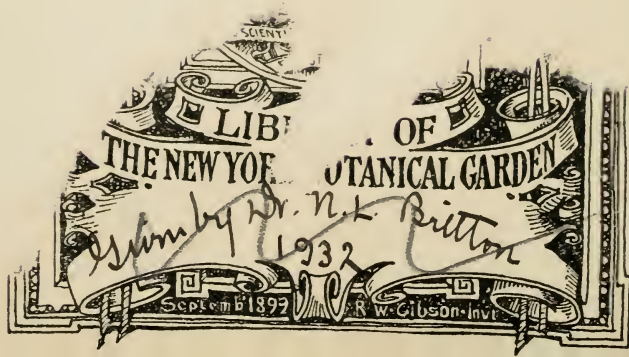 SCIENT
LIB OF
THE NEW YOR OTANICAL GARDEN
Given by Dr. N. L. Britton
1932
Septemb 1899 R·W·Gibson·Invt